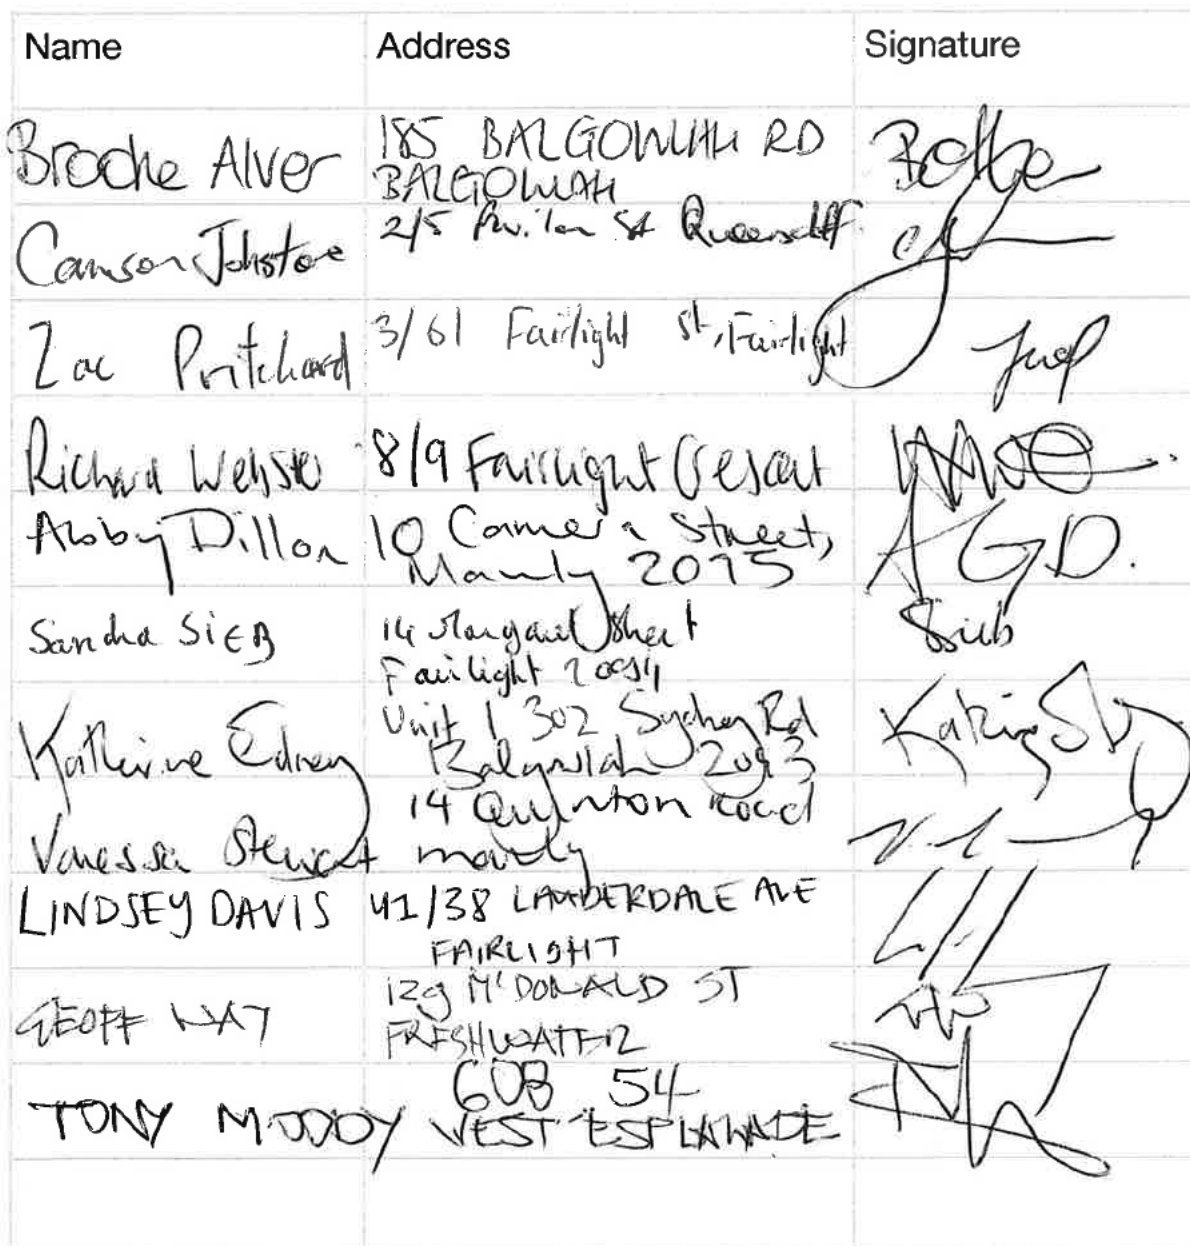 Name Address Signature
Brooke Alver 185 BALGOWLAH RD
BALGOWLAH
Johstone 2/5 St Queenscliff
Zac Pritchard 3/61 Fairlight St, Fairlight
Richard Webster 8/9 Fairlight Crescent
Abby Dillon 10 Camera Street,
Manly 2095 A G D.
Sandra SIEB 14 Margaret Street Sieb
Fairlight 2094
Katherine Edney Unit 1 302 Sydney Rd
Balgowlah 2093
14 Quinton Road
Vanessa Stewart manly
LINDSEY DAVIS 41/38 LAUDERDALE AVE
FAIRLIGHT
GEOFF WAY 129 McDONALD ST
FRESHWATER
608 54
TONY MOODY WEST ESPLANADE